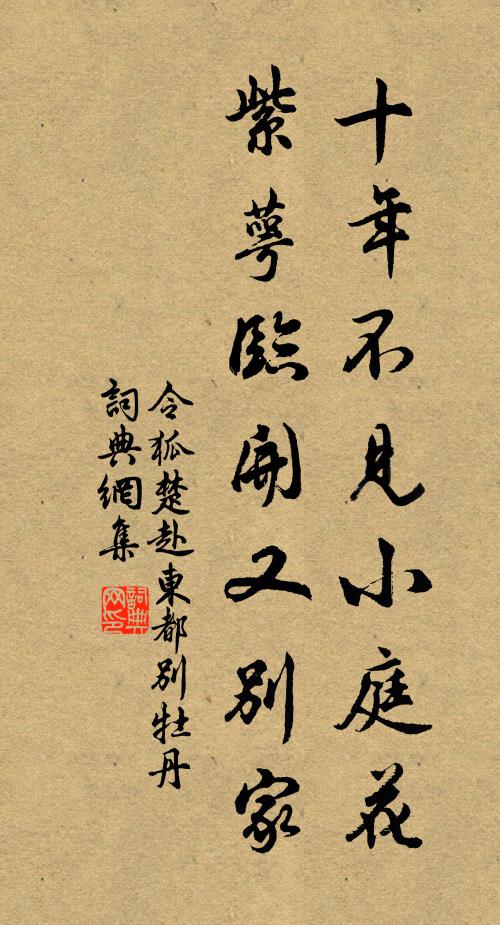 十年不見小庭花
紫萼臨開又別家
令狐楚赴東都別牡丹
詞典網集
詞典网印